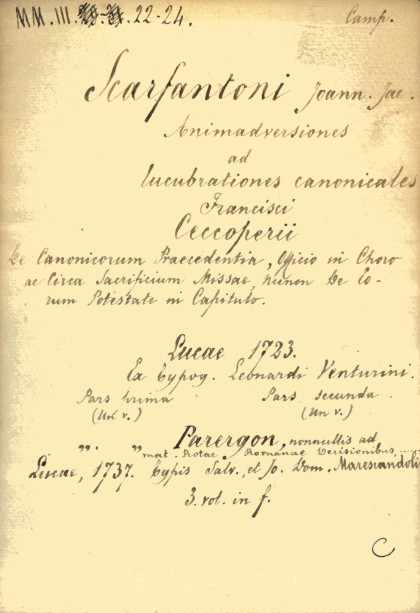 MM. III. 22-24. Camp.
Scarfantoni Joann. Jac.
Animadversiones
ad
lucubrationes canonicales
Francisci
Ceccoperii
De Canonicorum Praecedentia, Officio in Choro
ac Circa Sacrificium Missae, necnon De Eo-
rum Potestate in Capitulo.
Lucae 1723.
Ex typog. Leonardi Venturini.
Pars prima Pars secunda
(Un v.) (Un v.)
„ . „ Parergon, nonnullis ad
mat. Rotae Romanae Decisionibus......
Lucae, 1737. typis Salv. et Jo. Dom. Marescandoli
3. vol. in f.
C